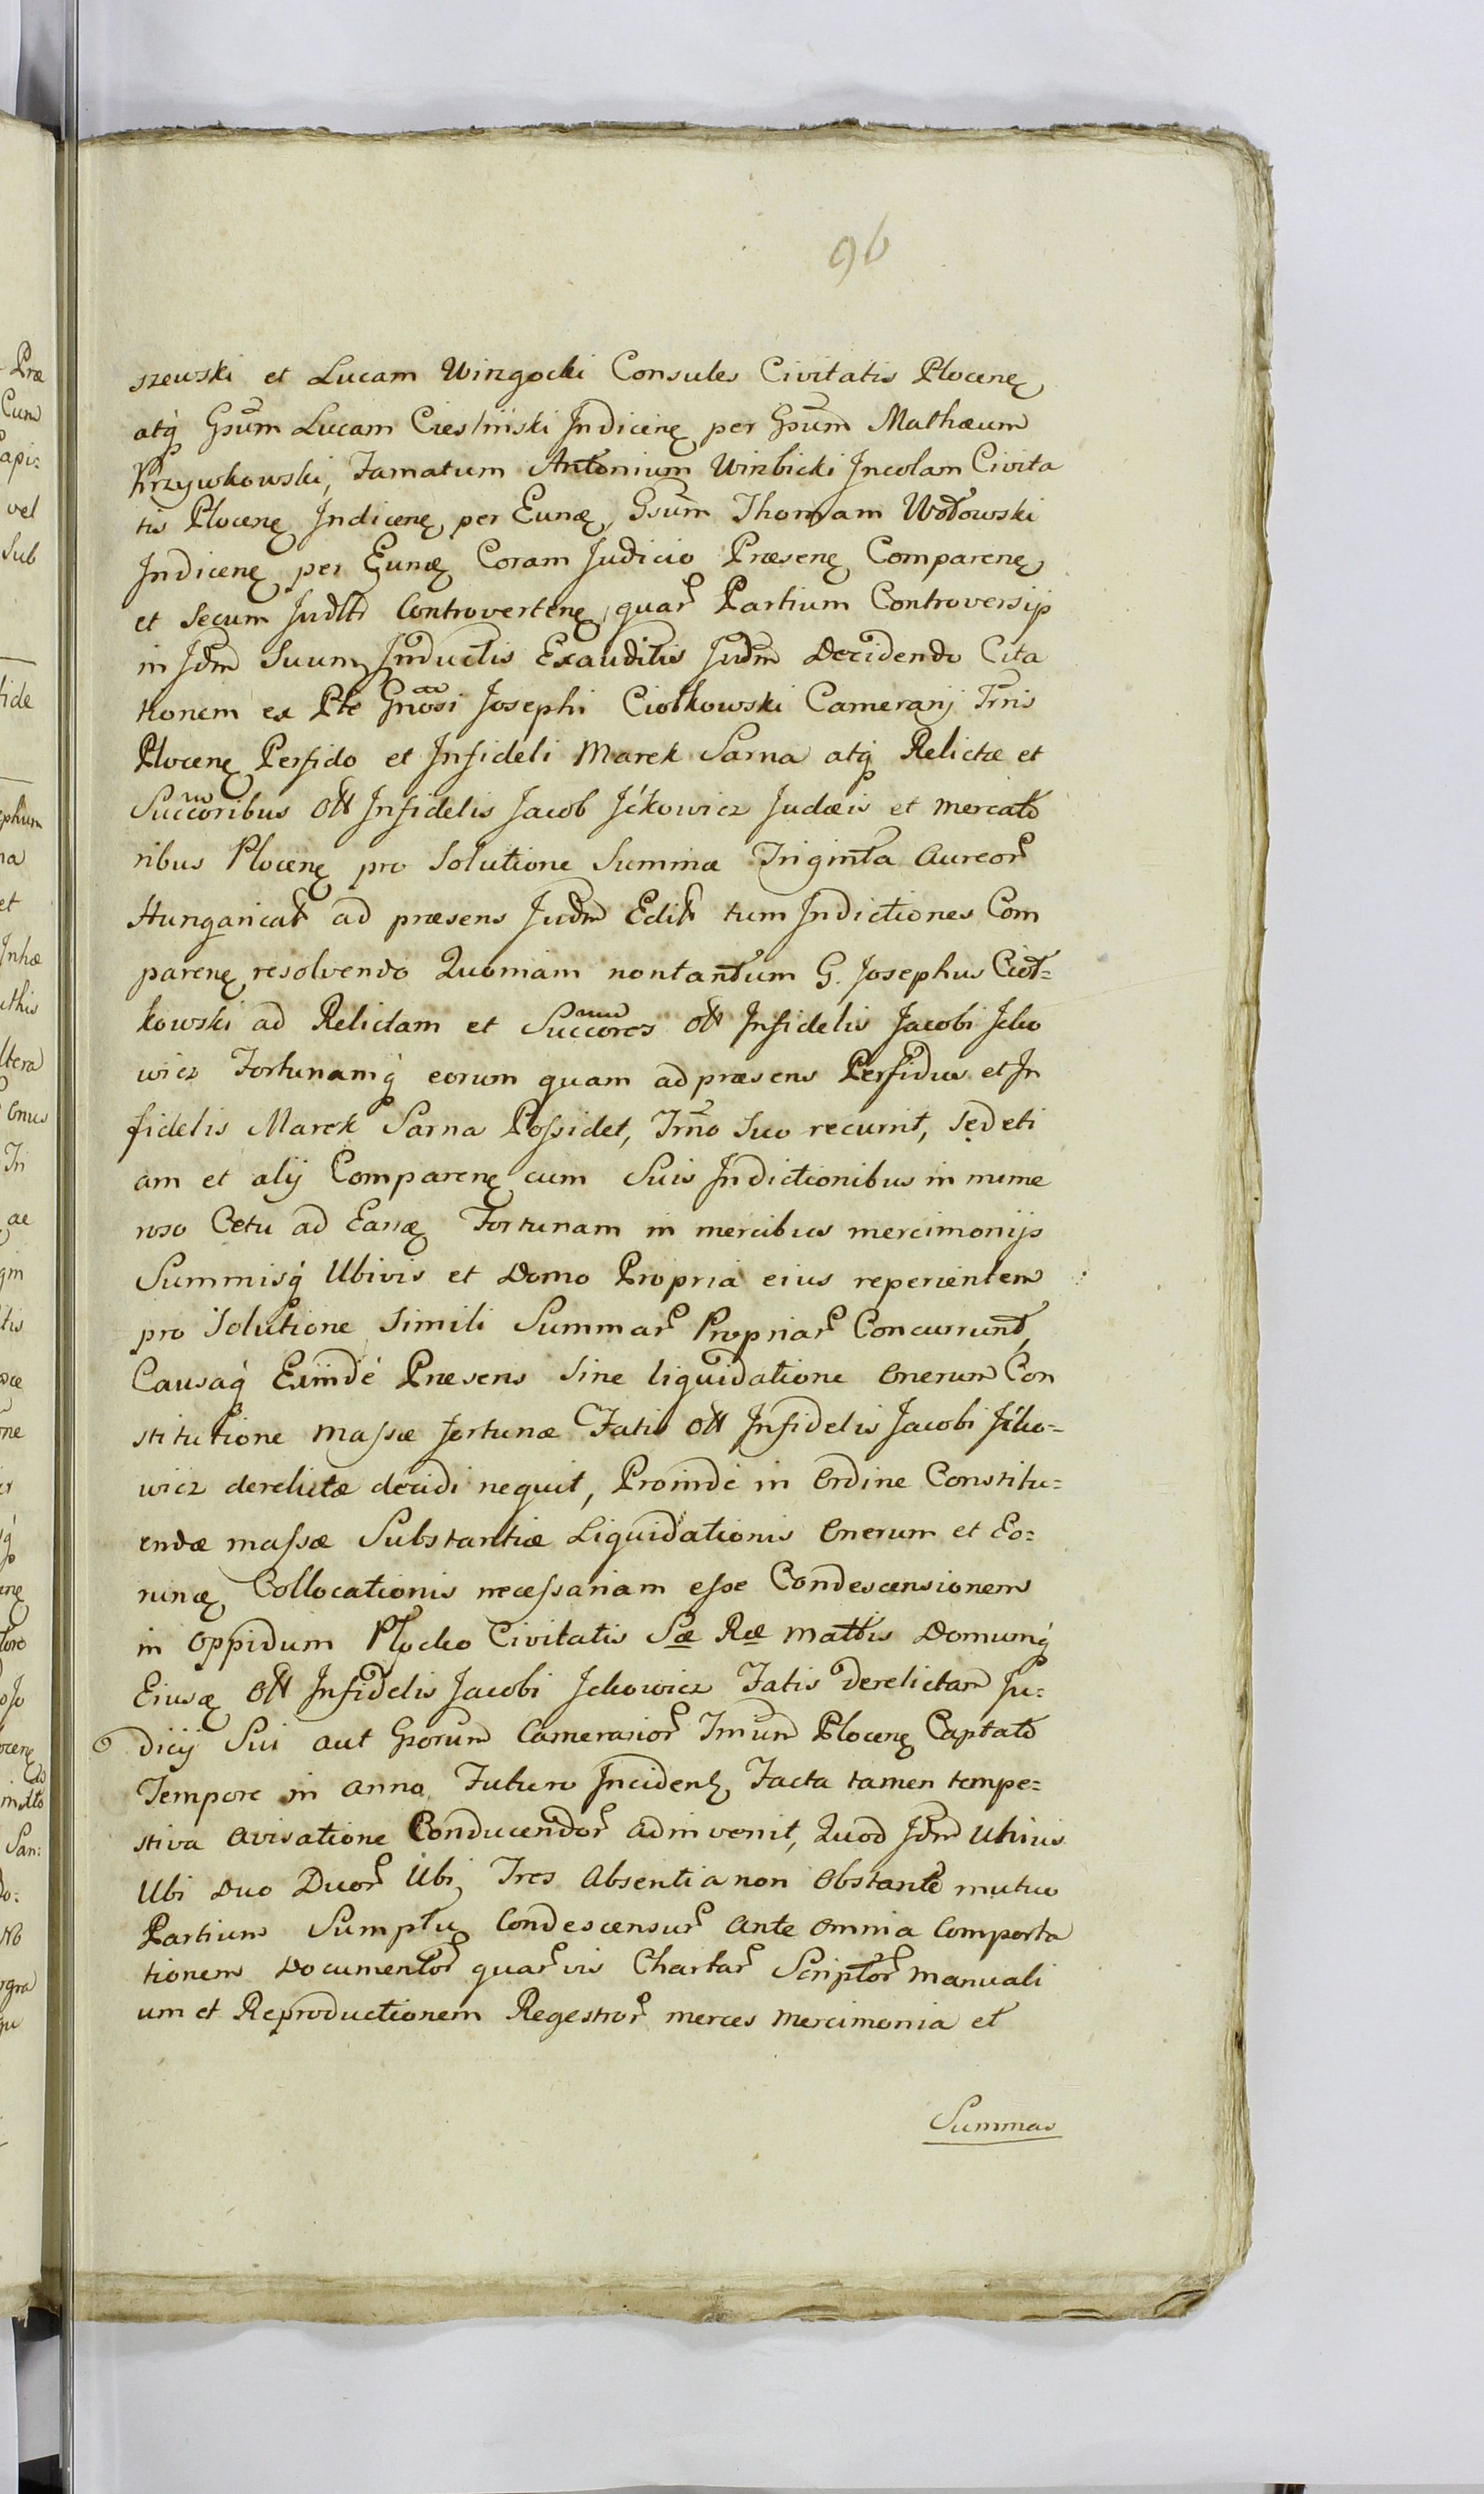 96
szewski et Lucam Wingocki Consules Civitatis Plocenę
atq́ Gsum Lucam Ciesliński Indicenę per Gsum Mathæum
Krzywkowski, Famatum Antonium Winbicki Incolam Civita
tis Plocenę Indicenę per Eunæ, Gsum Thomam Wołowski
Indicenę per Eunæ Coram Judicio Præsenę Comparenę
et Secum Judltr Controvertenę, quar Partium Controversijs
in Jdm Suum Inductis Exauditis Judm Decidendo Cita
tionem ex Pte Gnosi Josephi Ciołkowski Cameranj Trris
Plocenę Perfido et Infideli Marek Sarna atq́ Relictæ et
Succoribus Olt Infidelis Jacob Ickowicz Judæis et mercato
ribus Plocenę pro Solutione Summæ Triginta Aureor
Hungaricalr ad præsens Judm Edilr tum Indictiones Com
parenę resolvendo Quoniam nontantum G. Josephus Cioł=
kowski ad Relictam et Succores Olt Infidelis Jacobi Icko
wicz Fortunamq́ eorum quam ad præsens Perfidus et In
fidelis Marek Sarna Possidet, Trno Suo recurrit, sed eti
am et alij Comparenę cum Suis Indictionibus in nume
roso Cetu ad Eanæ Fortunam in mercibus mercimonijs
Summisq́ Ubivis et Domo Propria eius reperientem
pro Solutione Simili Summar Propriar Concurrunt,
Causaq́ Exindé Præsens Sine liquidatione Onerum Con
stitutione massæ fortunæ Fatis Olt Infidelis Jacobi Icko=
wicz derelictæ decidi nequit, Proindé in Ordine Constitu=
endæ massæ Substantiæ Liquidationis Onerum et Eo=
runæ Collocationis necessariam esse Condescensionem
in Oppidum Płocko Civitatis Sæ Ræ Mattis Domumq́
Eiusæ Olt Infidelis Jacobi Ickowicz Fatis Derelictam Ju=
dicij Sui aut Gsorum Camerarior Trrum Plocenę Captato
Tempore in anno Futuro Incidenę Facta tamen tempe=
stiva avisatione Conducendor adinvenit, Quod Jdm Unius
Ubi Duo Duor Ubi Tres Absentia non Obstante mutuo
Partium Sumptu Condescensur Ante Omnia Comporta
tionem Documentor quarvis Chartar Scriptor manuali
um et Reproductionem Regestror merces mercimonia et
Summas